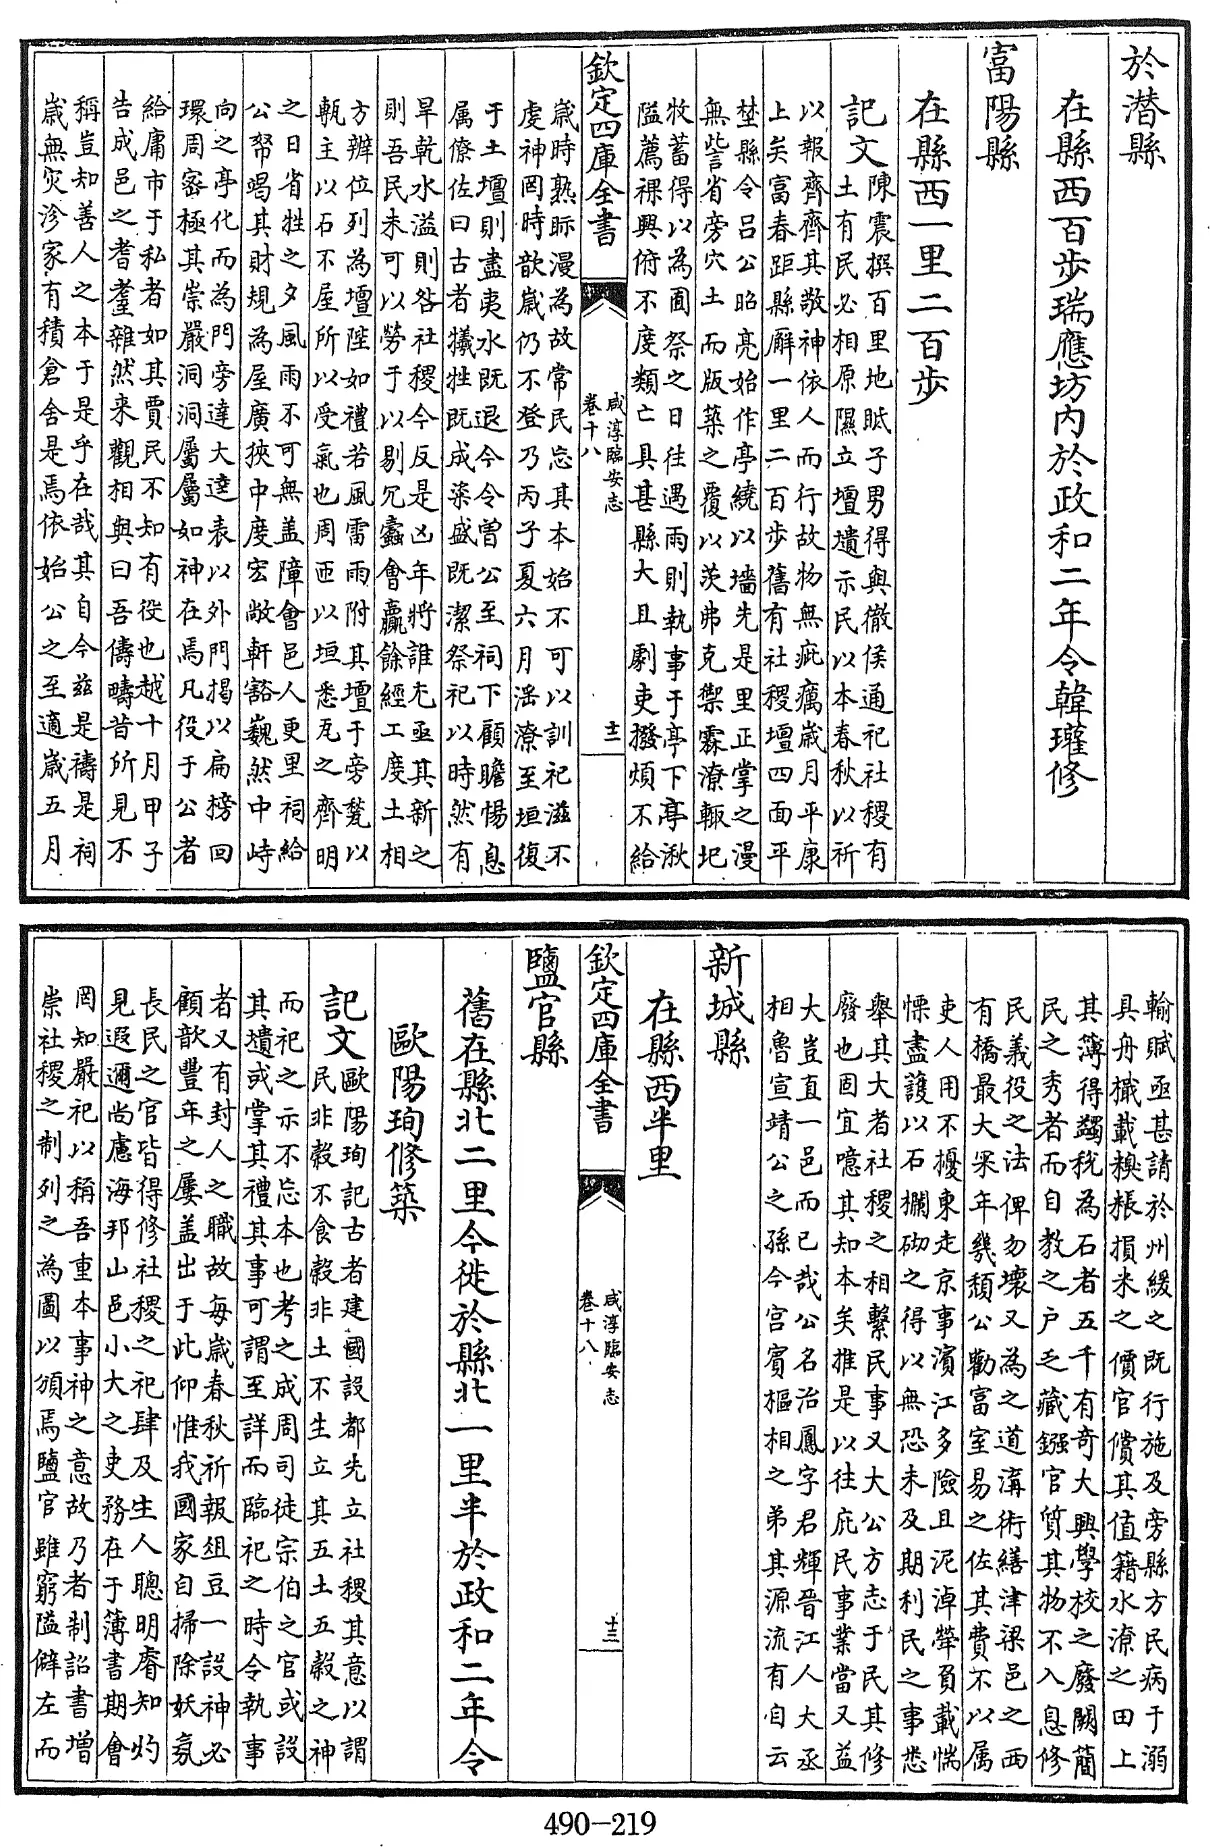 於潛縣
在縣西百歩瑞應坊内於政和二年令韓㬇修
富陽縣
在縣西一里二百歩
記文
陳震撰百里地賦子男得與徹侯通祀社稷有
土有民必相原隰立壇壝示民以本春秋以祈
以報齊齊其敬神依人而行故物無疵癘歳月平康
上矣富春距縣廨一里二百歩舊有社稷壇四面平
埜縣令吕公昭亮始作亭繞以墻先是里正掌之漫
無訾省旁穴土而版築之覆以茨弗克禦霖潦輙圮
牧蓄得以為圃祭之日往遇雨則執事于亭下亭湫
隘薦祼興俯不度類亡具甚縣大且劇吏撥煩不給
欽定四庫全書
咸淳臨安志
卷十八
十二
歳時熟眎漫為故常民忘其本始不可以訓祀滋不
虔神罔時歆歳仍不登乃丙子夏六月滛潦至垣復
于土壇則盡夷水既退今令曽公至祠下顧瞻惕息
属僚佐曰古者犧牲既成粢盛既潔祭祀以時然有
旱乾水溢則咎社稷今反是凶年將誰尤亟其新之
則吾民未可以勞于以剔冗蠧會贏餘經工度土相
方辨位列為壇陛如禮若風雷雨附其壇于旁甃以
甎主以石不屋所以受氣也周匝以垣悉瓦之齊明
之日省牲之夕風雨不可無盖障會邑人更里祠給
公帑竭其財規為屋廣挾中度宏敞軒豁巍然中峙
向之亭化而為門旁達大逵表以外門揭以扁榜回
環周宻極其崇嚴洞洞屬屬如神在焉凡役于公者
給庸市于私者如其賈民不知有役也越十月甲子
告成邑之耆耋雜然来觀相與曰吾儔疇昔所見不
稱豈知善人之本于是乎在哉其自今兹是禱是祠
歳無灾沴家有積倉舎是焉依始公之至適歳五月
輸賦亟甚請於州緩之既行施及旁縣方民病于溺
具舟檝載糗粻損米之價官償其值籍水潦之田上
其薄得蠲税為石者五千有奇大興學校之廢闕蕳
民之秀者而自教之户乏藏鏹官質其物不入息修
民義役之法俾勿壊又為之道溝術繕津梁邑之西
有橋最大杗年㡬頽公勸富室易之佐其費不以属
吏人用不擾東走京事濱江多險且泥淖犖負載惴
慄盡䕶以石欄砌之得以無恐未及期利民之事悉
舉其大者社稷之相繫民事又大公方志于民其修
廢也固宜噫其知本矣推是以往庇民事業當又益
大豈直一邑而已哉公名治鳳字君輝晉江人大丞
相魯宣靖公之孫今宫賓樞相之弟其源流有自云
新城縣
在縣西半里
欽定四庫全書
咸淳臨安志
卷十八
十三
鹽官縣
舊在縣北二里今徙於縣北一里半於政和二年令
歐陽珣修築
記文
歐陽珣記古者建國設都先立社稷其意以謂
民非穀不食穀非土不生立其五土五穀之神
而祀之示不忘本也考之成周司徒宗伯之官或設
其壝或掌其禮其事可謂至詳而臨祀之時令執事
者又有封人之職故每歳春秋祈報俎豆一設神必
顧歆豐年之屢盖出于此仰惟我國家自掃除妖氛
長民之官皆得修社稷之祀肆及生人聰明睿知灼
見遐邇尚慮海邦山邑小大之吏務在于薄書期會
罔知嚴祀以稱吾重本事神之意故乃者制詔書増
崇社稷之制列之為圖以頒焉鹽官雖窮隘僻左而
490-219